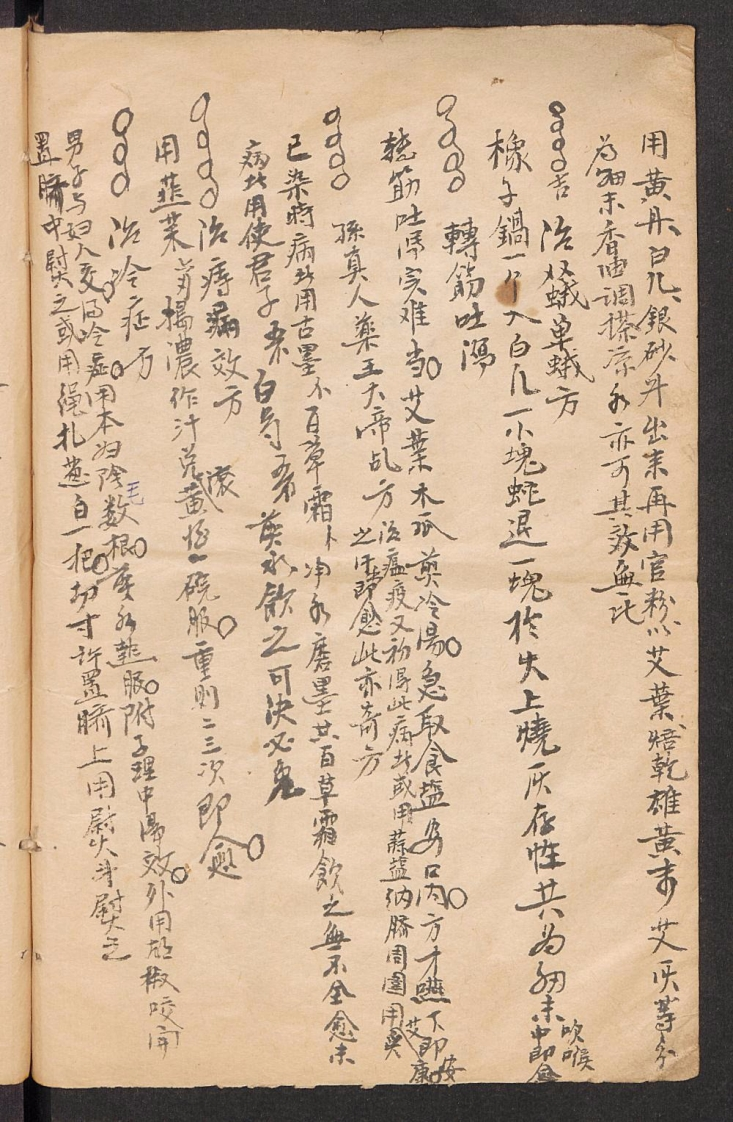 用黄丹白凡銀砂升出来再用官粉艾葉焙乾雄黄末艾灰等分
為細末香油調搽凉水亦可其效無比
治双蛾单蛾方
橡子鍋一个入白凡一小塊蛇退一塊於火上燒灰存性共為細末吹喉中即愈
轉筋吐瀉
轉筋吐瀉实难当艾葉木瓜煎冷湯急取食塩口内方才嚥下即安康
孫真人藥王大帝乩方治瘟疫又初得此病或用蒜塩纳臍周圍用艾
之即愈此亦奇方
已染時病用古墨百草霜净水磨墨共百草霜飲之無不全愈未
病此用使君子白芍煎水飲之可决必免
治痔漏效方
用韮菜搗濃作汁滚黄酒一碗服重則二三次即愈
治冷症方
男子与妇人交得冷症用本妇陰毛数根煎水服附子理中湯效外用胡椒咬開
置臍中熨之或用繩扎葱白一把切寸許置臍上用熨火斗熨之